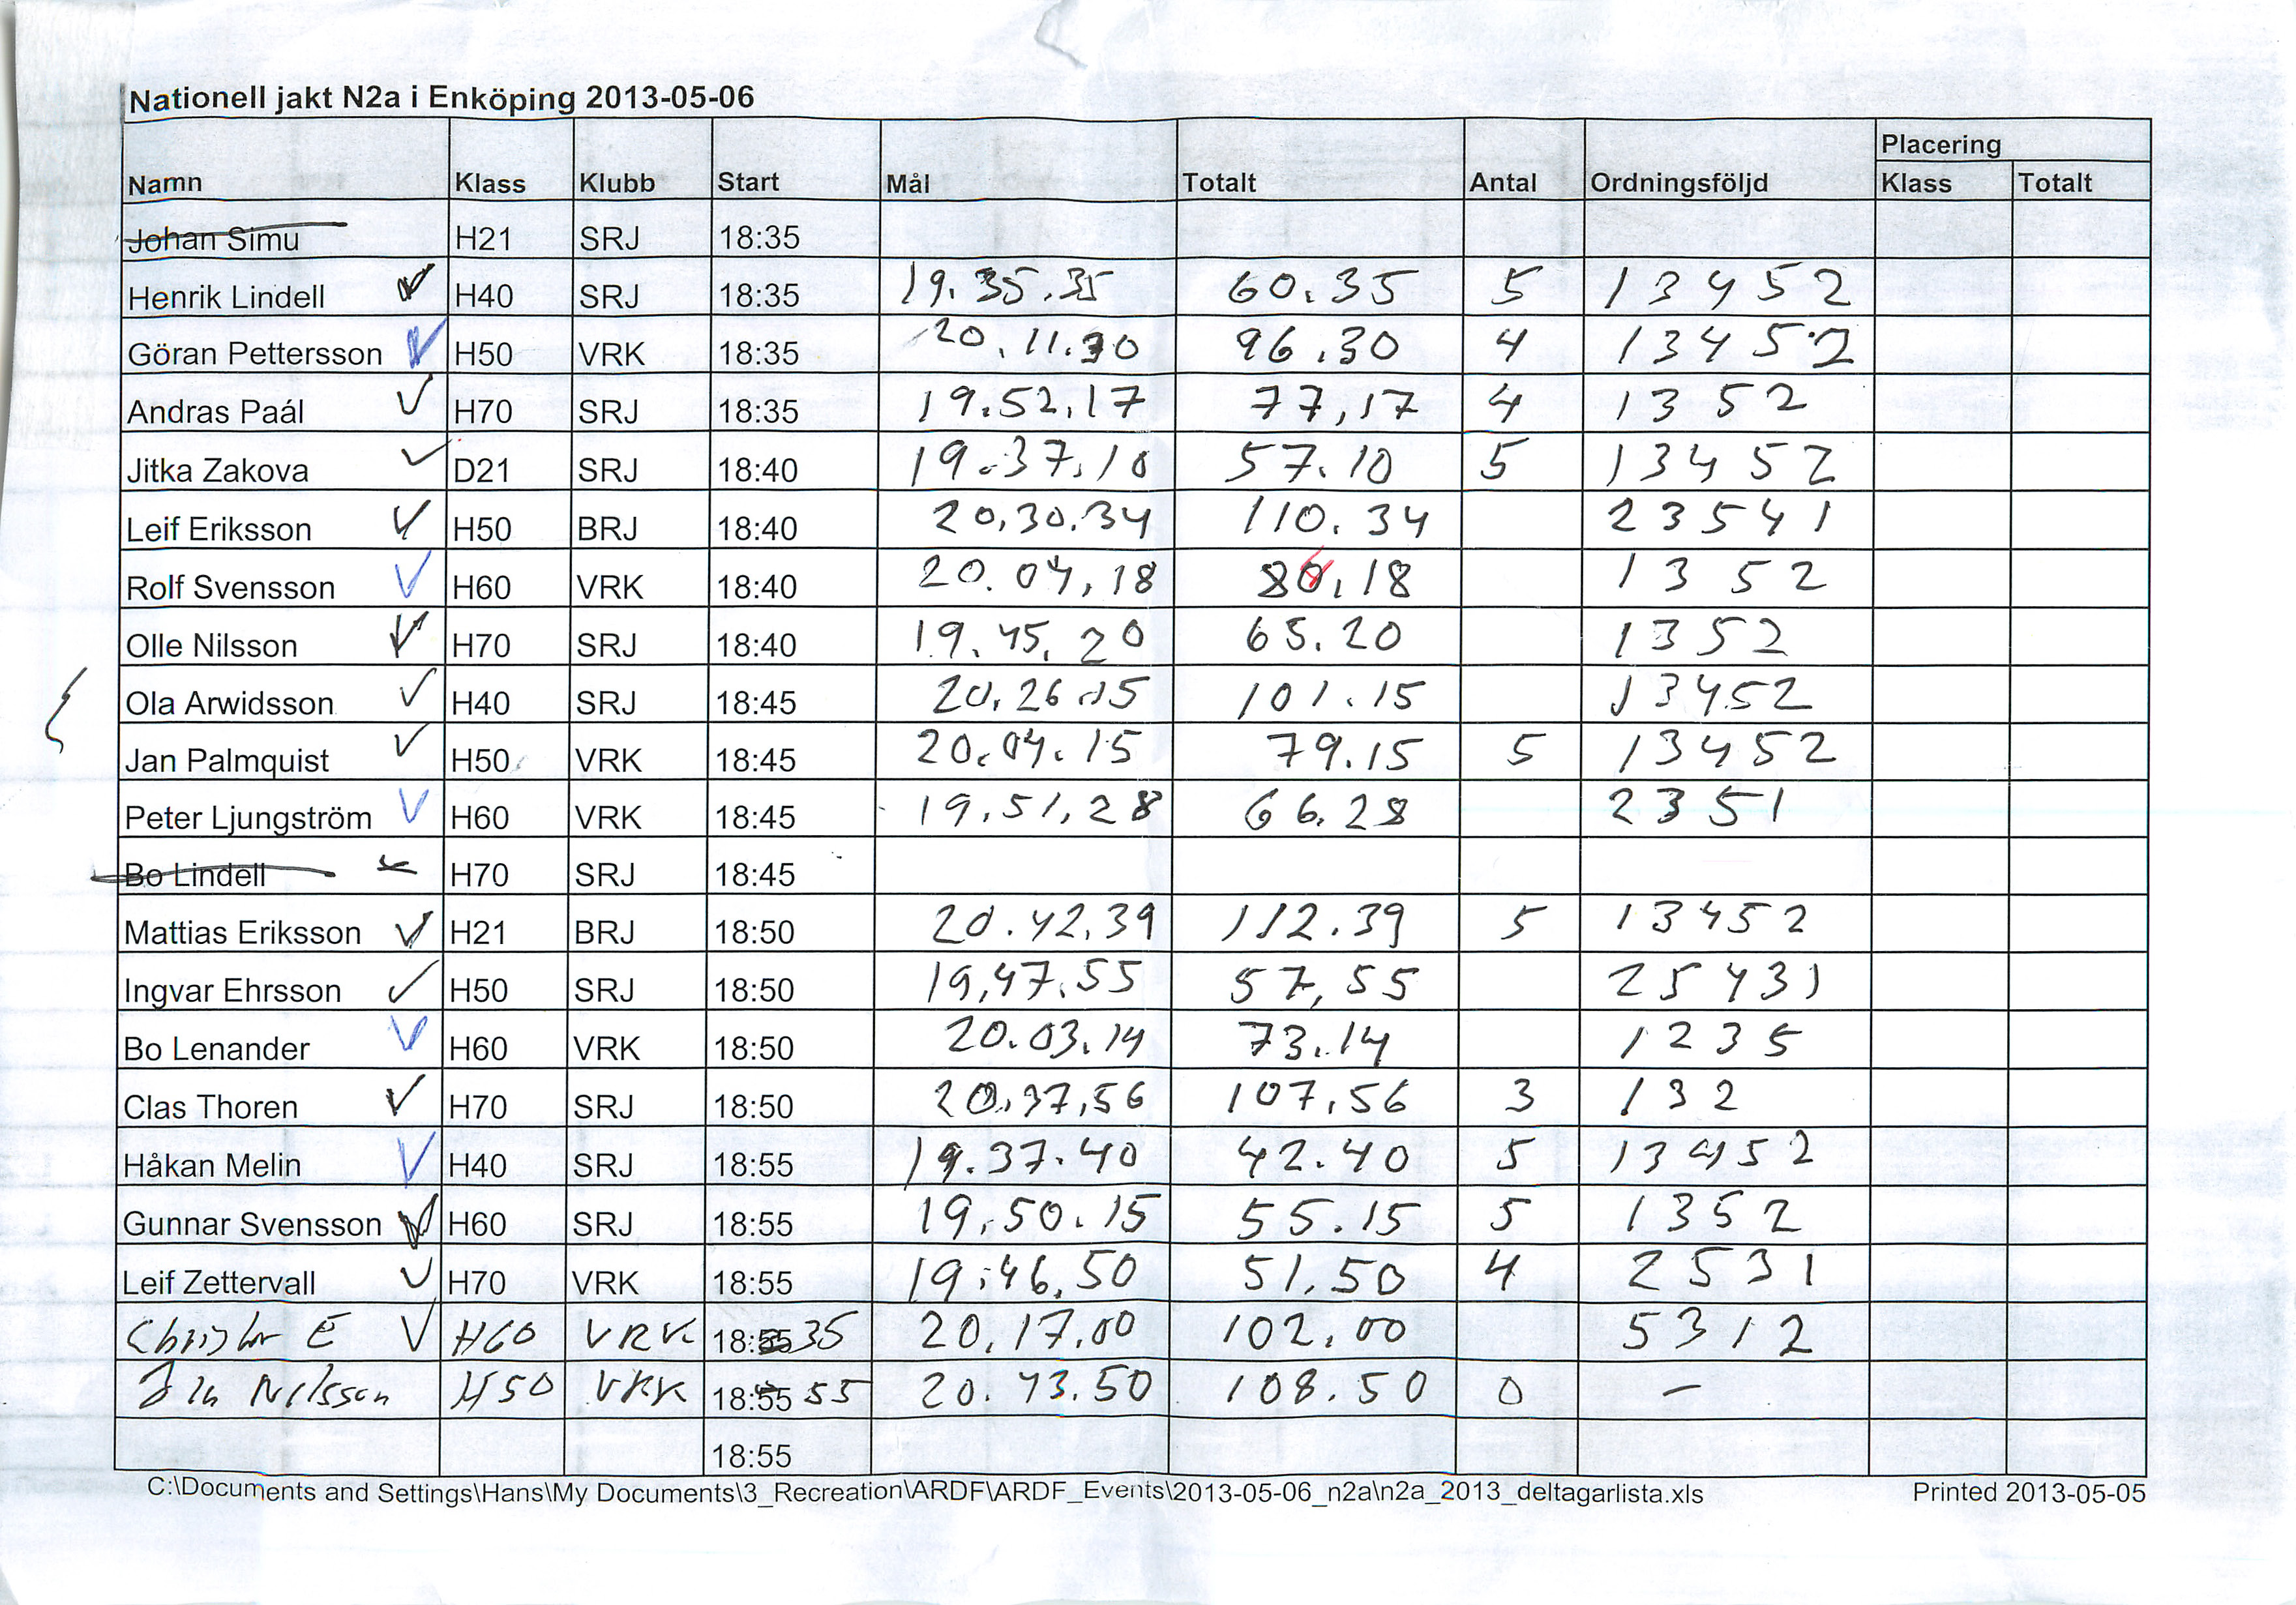 Nationell jakt N2a i Enköping 2013-05-06
Placering
Namn Klass Klubb Start Mål Totalt Antal Ordningsföljd Klass Totalt
Johan Simu H21 SRJ 18:35
Henrik Lindell H40 SRJ 18:35 19.35.35 60.35 5 1 3 4 5 2
Göran Pettersson H50 VRK 18:35 20.11.30 96.30 4 1 3 4 5 2
Andras Paál H70 SRJ 18:35 19.52.17 77,17 4 1 3 5 2
Jitka Zakova D21 SRJ 18:40 19.37.10 57.10 5 1 3 4 5 2
Leif Eriksson H50 BRJ 18:40 20,30.34 110.34 2 3 5 4 1
Rolf Svensson H60 VRK 18:40 20.04,18 18 1 3 5 2
Olle Nilsson H70 SRJ 18:40 19.45.20 65.20 1 3 5 2
Ola Arwidsson H40 SRJ 18:45 20,26.15 101.15 1 3 4 5 2
Jan Palmquist H50 VRK 18:45 20.04.15 79.15 5 1 3 4 5 2
Peter Ljungström H60 VRK 18:45 19.51,28 66.28 2 3 5 1
Bo Lindell H70 SRJ 18:45
Mattias Eriksson H21 BRJ 18:50 20.42.39 112.39 5 1 3 4 5 2
Ingvar Ehrsson H50 SRJ 18:50 19,47.55 57,55 2 5 4 3 1
Bo Lenander H60 VRK 18:50 20.03.14 73.14 1 2 3 5
Clas Thoren H70 SRJ 18:50 20.37,56 107.56 3 1 3 2
Håkan Melin H40 SRJ 18:55 19.37.40 42.40 5 1 3 4 5 2
Gunnar Svensson H60 SRJ 18:55 19.50.15 55.15 5 1 3 5 2
Leif Zettervall H70 VRK 18:55 19.46.50 51,50 4 2 5 3 1
Christer E H60 VRK 18:55 35 20.17.00 102.00 5 3 1 2
Nilsson H50 VRK 18:55 55 20.43.50 108.50 0 –
18:55
C:\Documents and Settings\Hans\My Documents\3_Recreation\ARDF\ARDF_Events\2013-05-06_n2a\n2a_2013_deltagarlista.xls Printed 2013-05-05